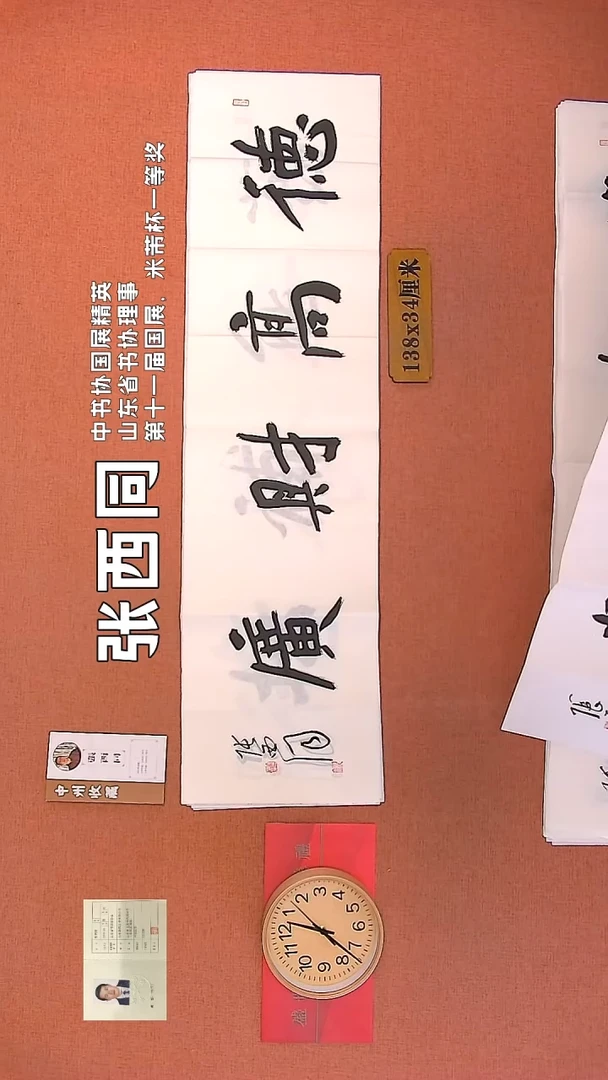 张西同
中书协国展精英
山东省书协理事
第十一届国展、米芾杯一等奖
張西同
中州收藏
德高財廣
張西同
138x34厘米
12 1 2 3 4 5 6 7 8 9 10 11